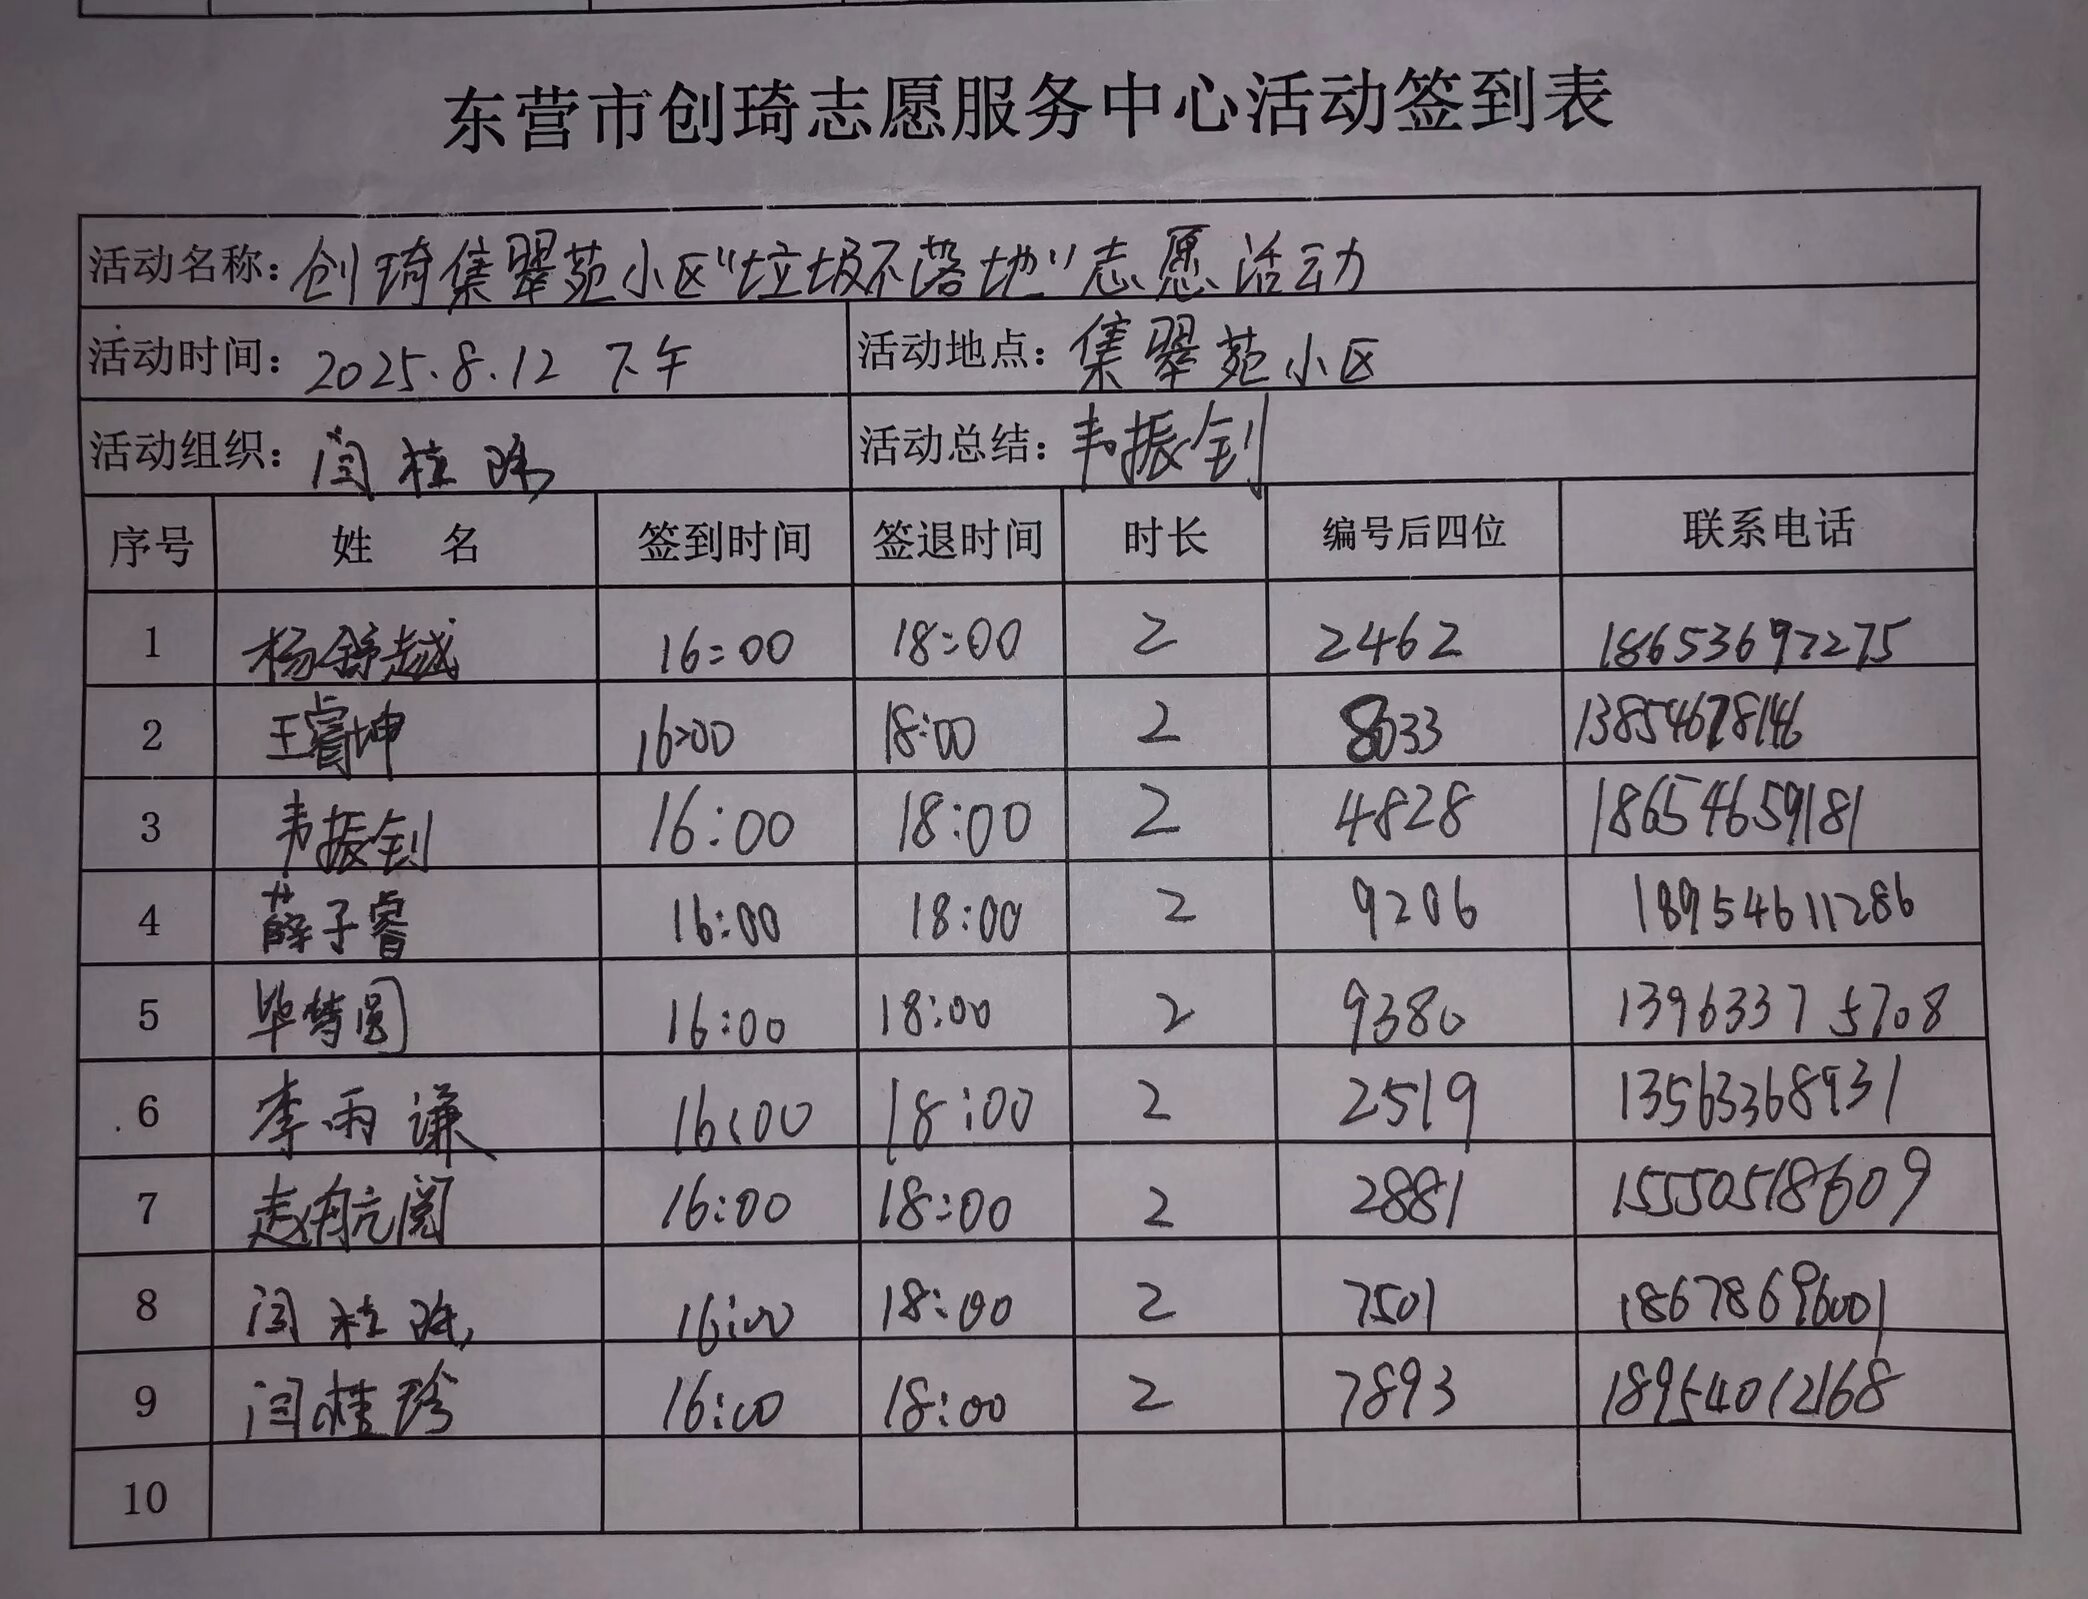 东营市创琦志愿服务中心活动签到表
活动名称: 创琦集翠苑小区"垃圾不落地"志愿活动
活动时间: 2025.8.12 下午 活动地点: 集翠苑小区
活动组织: 闫桂 活动总结: 韦振钊
序号 姓 名 签到时间 签退时间 时长 编号后四位 联系电话
1 杨舒越 16:00 18:00 2 2462 18653697275
2 王睿坤 16:00 18:00 2 8033 13854678146
3 韦振钊 16:00 18:00 2 4828 18654659181
4 薛子睿 16:00 18:00 2 9206 18954611286
5 毕梦圆 16:00 18:00 2 9380 13963375708
6 李雨谦 16:00 18:00 2 2519 13563368931
7 赵航阅 16:00 18:00 2 2881 15550518609
8 闫桂 16:00 18:00 2 7501 18678696001
9 闫桂珍 16:00 18:00 2 7893 18954012168
10